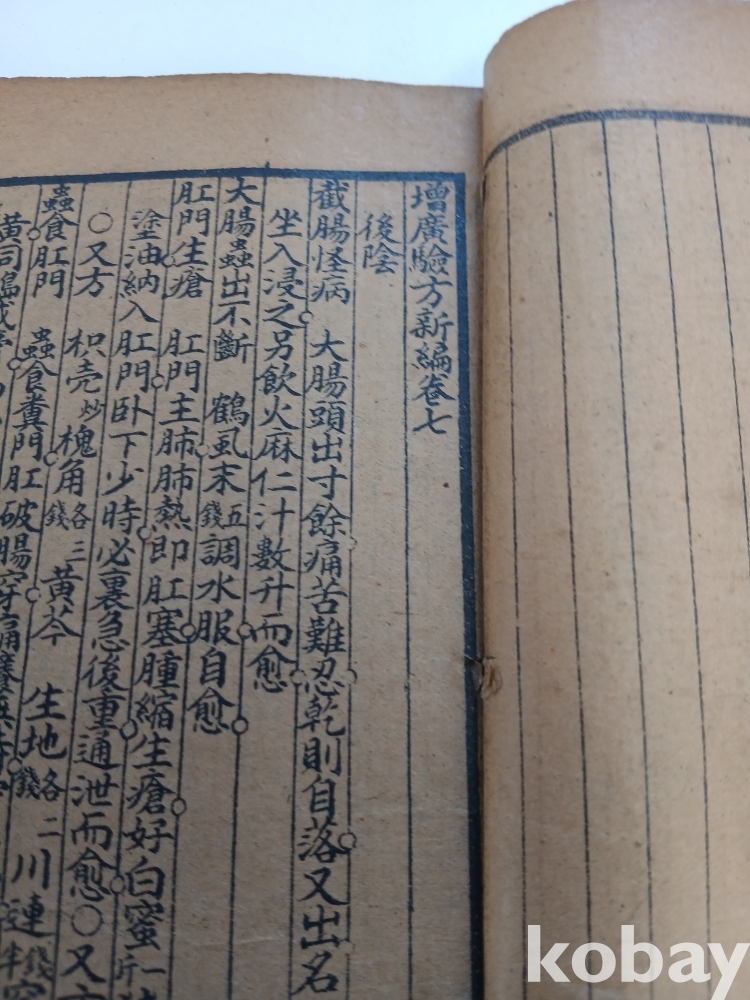 增廣驗方新編卷七
後陰
截腸怪病 大腸頭出寸餘痛苦難忍乾則自落又出名
坐入浸之另飲火麻仁汁數升而愈
大腸蟲出不斷 鶴虱末五錢調水服自愈
肛門生瘡 肛門主肺肺熱即肛塞腫縮生瘡好白蜜一
塗油納入肛門卧下少時必裏急後重通泄而愈○又
○又方 枳壳炒 槐角各三錢 黃芩 生地各二錢 川連錢半
蟲食肛門 蟲食糞門肛破腸穿痛癢
kobay